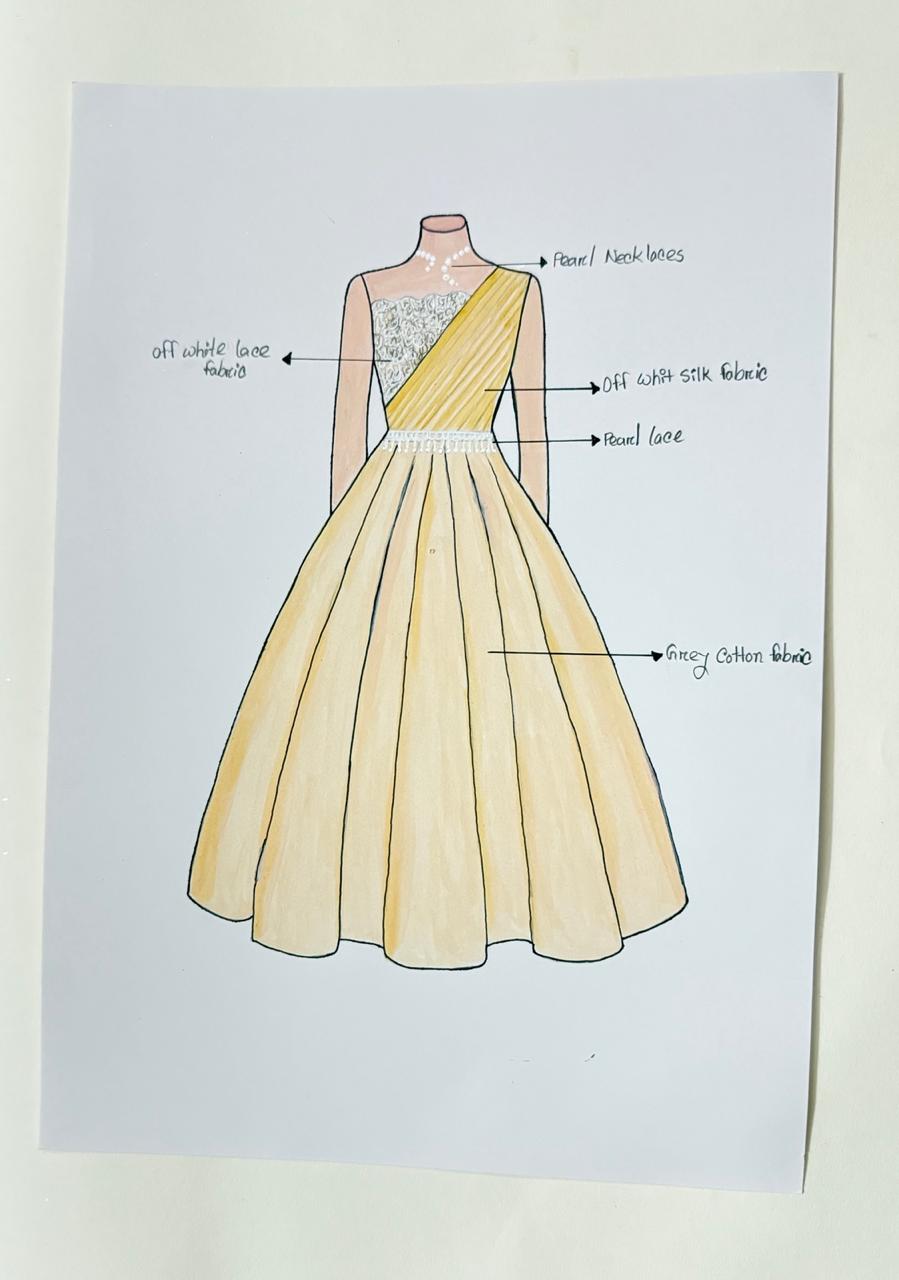 Pearl Necklaces
off white lace
fabric
Off whit silk fabric
Pearl lace
Grey Cotton fabric